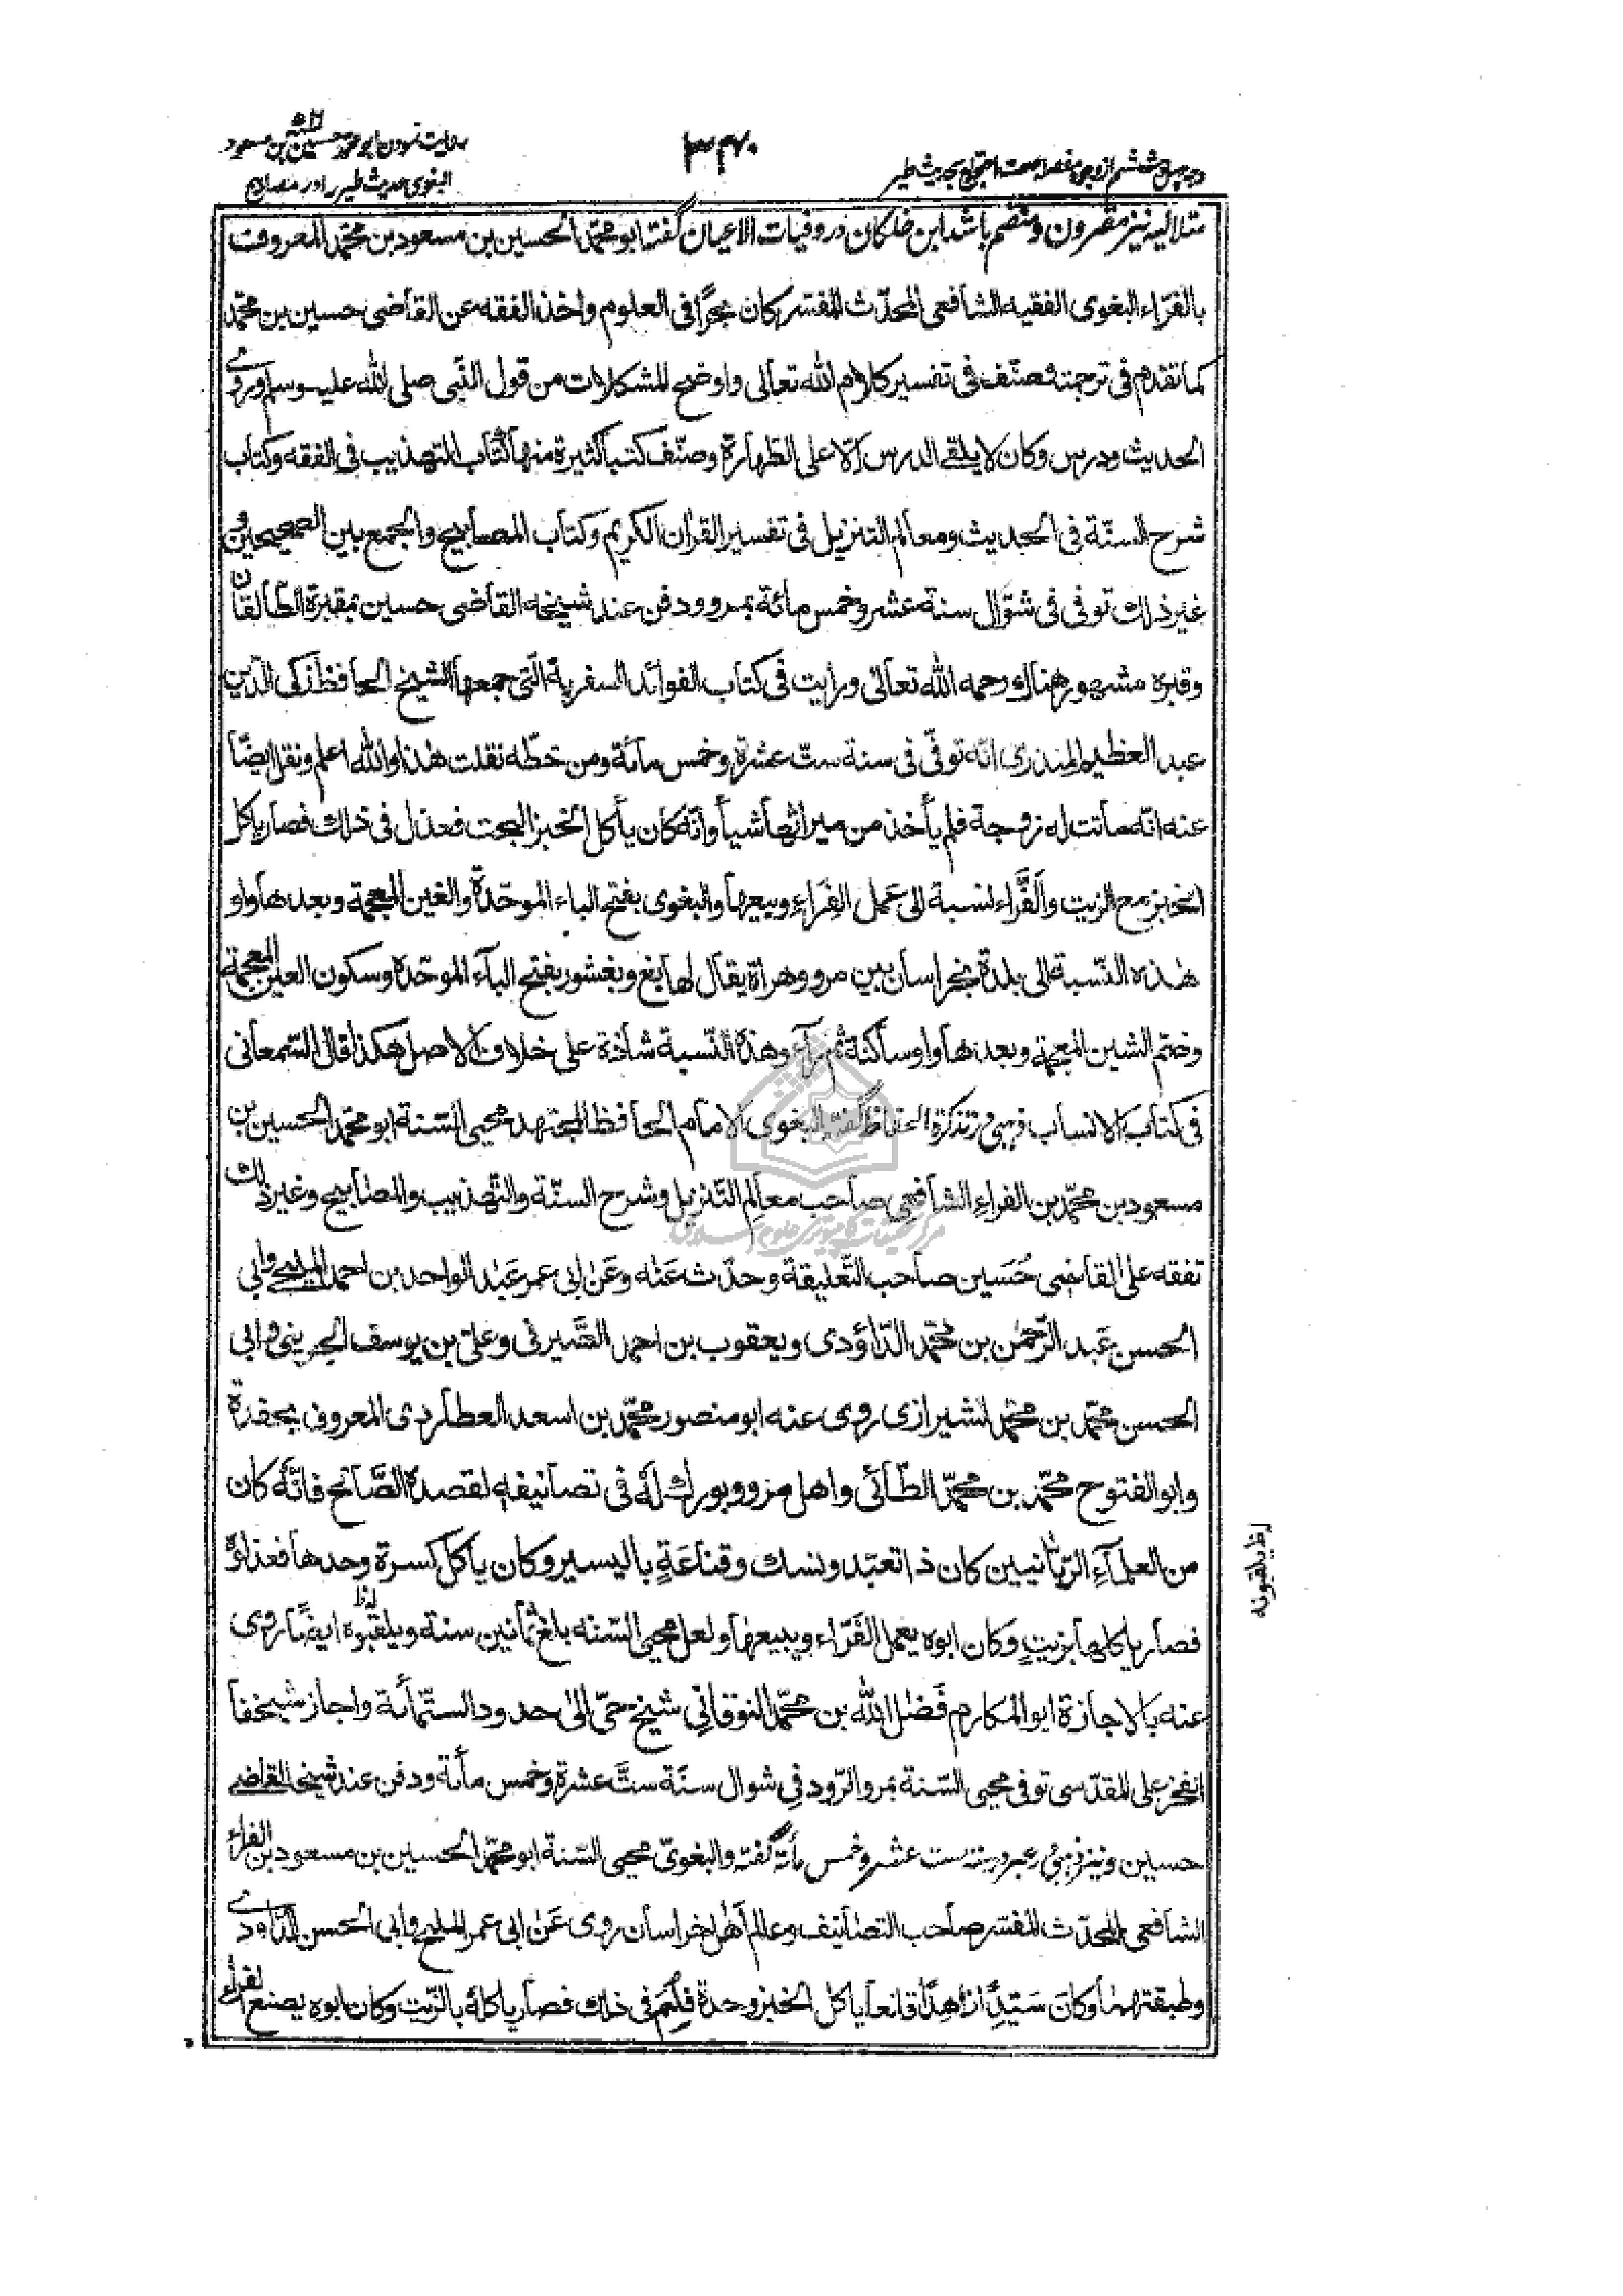 روایت نمودن ابو محمد حسین بن مسعود
البغوی حدیث طیر را در مصابیح
۳۴۰
وجه چهل و ششم از وجوه مفصله صحت احتجاج بحدیث طیر
متلالیه نیز مقرون و منضم باشد ابن خلکان در وفیات الاعیان گفته ابو محمّد الحسین بن مسعود بن محمّد المعروف
بالفرّاء البغوی الفقیه الشافعی المحدّث المفسر کان بحرًا فی العلوم واخذ الفقه عن القاضی حسین بن محمّد
کما تقدم فی ترجمته وصنّف فی تفسیر کلام الله تعالی واوضح المشکلات من قول النّبی صلی الله علیه وسلم وروی
الحدیث ودرس وکان لا یلقی الدرس الّا علی الطّهارة وصنّف کتبا کثیرة منها کتاب التهذیب فی الفقه وکتاب
شرح السنّة فی الحدیث ومعالم التنزیل فی تفسیر القران الکریم وکتاب المصابیح والجمع بین الصحیحین و
غیر ذلك توفی فی شوّال سنة عشر وخمس مائة بمرو ودفن عند شیخه القاضی حسین بمقبرة الطّالقان
وقبره مشهور هنالك رحمه الله تعالی ورایت فی کتاب الفوائد السفریة الّتی جمعها الشیخ الحافظ زکی الدّین
عبد العظیم المنذری انّه توفّی فی سنة ستّ عشرة وخمس مائة ومن خطّه نقلت هذا والله اعلم ونقل ایضًا
عنه انّه ماتت له زوجة فلم یأخذ من میراثها شیأ وانّه کان یأکل الخبز البحت فعذل فی ذلك فصار یاکل
الخبز مع الزیت والفَرَّاء نسبة الی عمل الفِرَاءِ وبیعها والبغوی بفتح الباء الموحّدة والغین المعجمة وبعدها واو
هذه النّسبة الی بلدة بخراسان بین مرو وهراة یقال لها بغ وبغشور بفتح البآء الموحّدة وسکون الغین المعجمة
وضم الشین المعجمة وبعدها واو ساکنة ثم رآء وهذه النّسبة شاذة علی خلاف الاصل هکذا قال السّمعانی
فی کتاب الانساب ذهبی در تذکرة الحفاظ گفته البغوی الامام الحافظ المجتهد محیی السّنة ابو محمّد الحسین بن
مسعود بن محمّد بن الفراء الشافعی صاحب معالم التّنزیل وشرح السنّة والتّهذیب والمصابیح وغیر ذلك
تفقه علی القاضی حُسَین صاحب التّعلیقة وحدّث عَنه وعَن ابی عمر عَبْد الواحد بن احمد الملیحی وابی
الحسن عَبد الرّحمٰن بن محمّد الدّاؤدی ویعقوب بن احمد الصَّیرفی وعلی بن یوسف الجوینی وابی
الحسن محمّد بن محمّد الشیرازی روی عنه ابو منصور محمّد بن اسعد العطاردی المعروف بحفدة
وابو الفتوح محمّد بن محمّد الطّائی واهل مرو وبورك لَهُ فی تصانیفه لقصده الصَّالح فانّهُ کان
من العلمآءِ الربّانیین کان ذا تعبّد ونسك وقناعَةٍ بالیسیر وکان یاکل کسرة وحدها فعذلوه
فصار یاکلها بزیتٍ وکان ابوه یعمل الفَرّاء ویبیعها ولعل محیی السّنه بلغ ثمانین سنة ویلقبوه ایضًا روی
عنه بالاجازة ابو المکارم فَضْل الله بن محمّد النوقانی شیخ حیّ الی حدود السّتّمائة واجاز شیخنا
الفخر علی المقدّسی توفی محیی السّنة بمرو الرّود فی شوال سنَة ستَّ عشرة وخمس مأئة ودفن عند شیخه القاضی
حسین ونیز ذهبی در عبر در سنه ست عشر وخمس مأئة گفته والبغویّ محیی السّنة ابو محمّد الحسین بن مسعود بن الفراء
الشافعی المحدّث المفسر صاحب التصانیف وعالم اَهْل خراسان روی عَن ابی عمر الملیحی وابی الحسن الدّاودی
وطبقتهما وکان سَیّدًا زاهدًا قانعا یاکل الخبز وحدَهُ فلیم فی ذلك فصار یاکله بالزّیت وکان ابوه یصنع الفراء
ظ
ظ یلقبونه
مرکز تحقیقات کامپیوتری علوم اسلامی